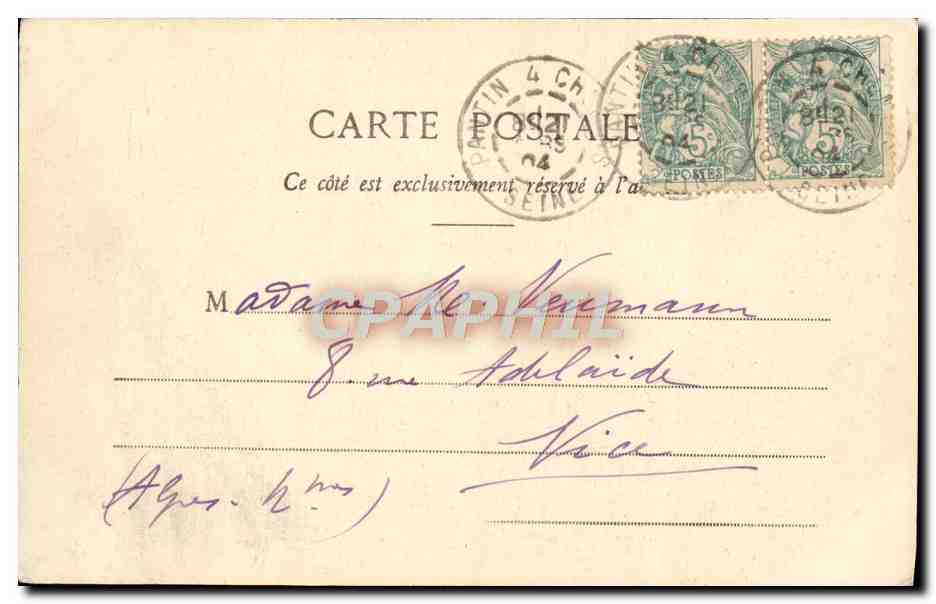 CARTE POSTALE
Ce côté est exclusivement réservé à l'a
PANTIN 4 CH.
21
04
SEINE
5c
POSTES
5c
POSTES
Madame Neumann
8. rue Adelaïde
Nice
(Alpes-Mmes)
CPAPHIL